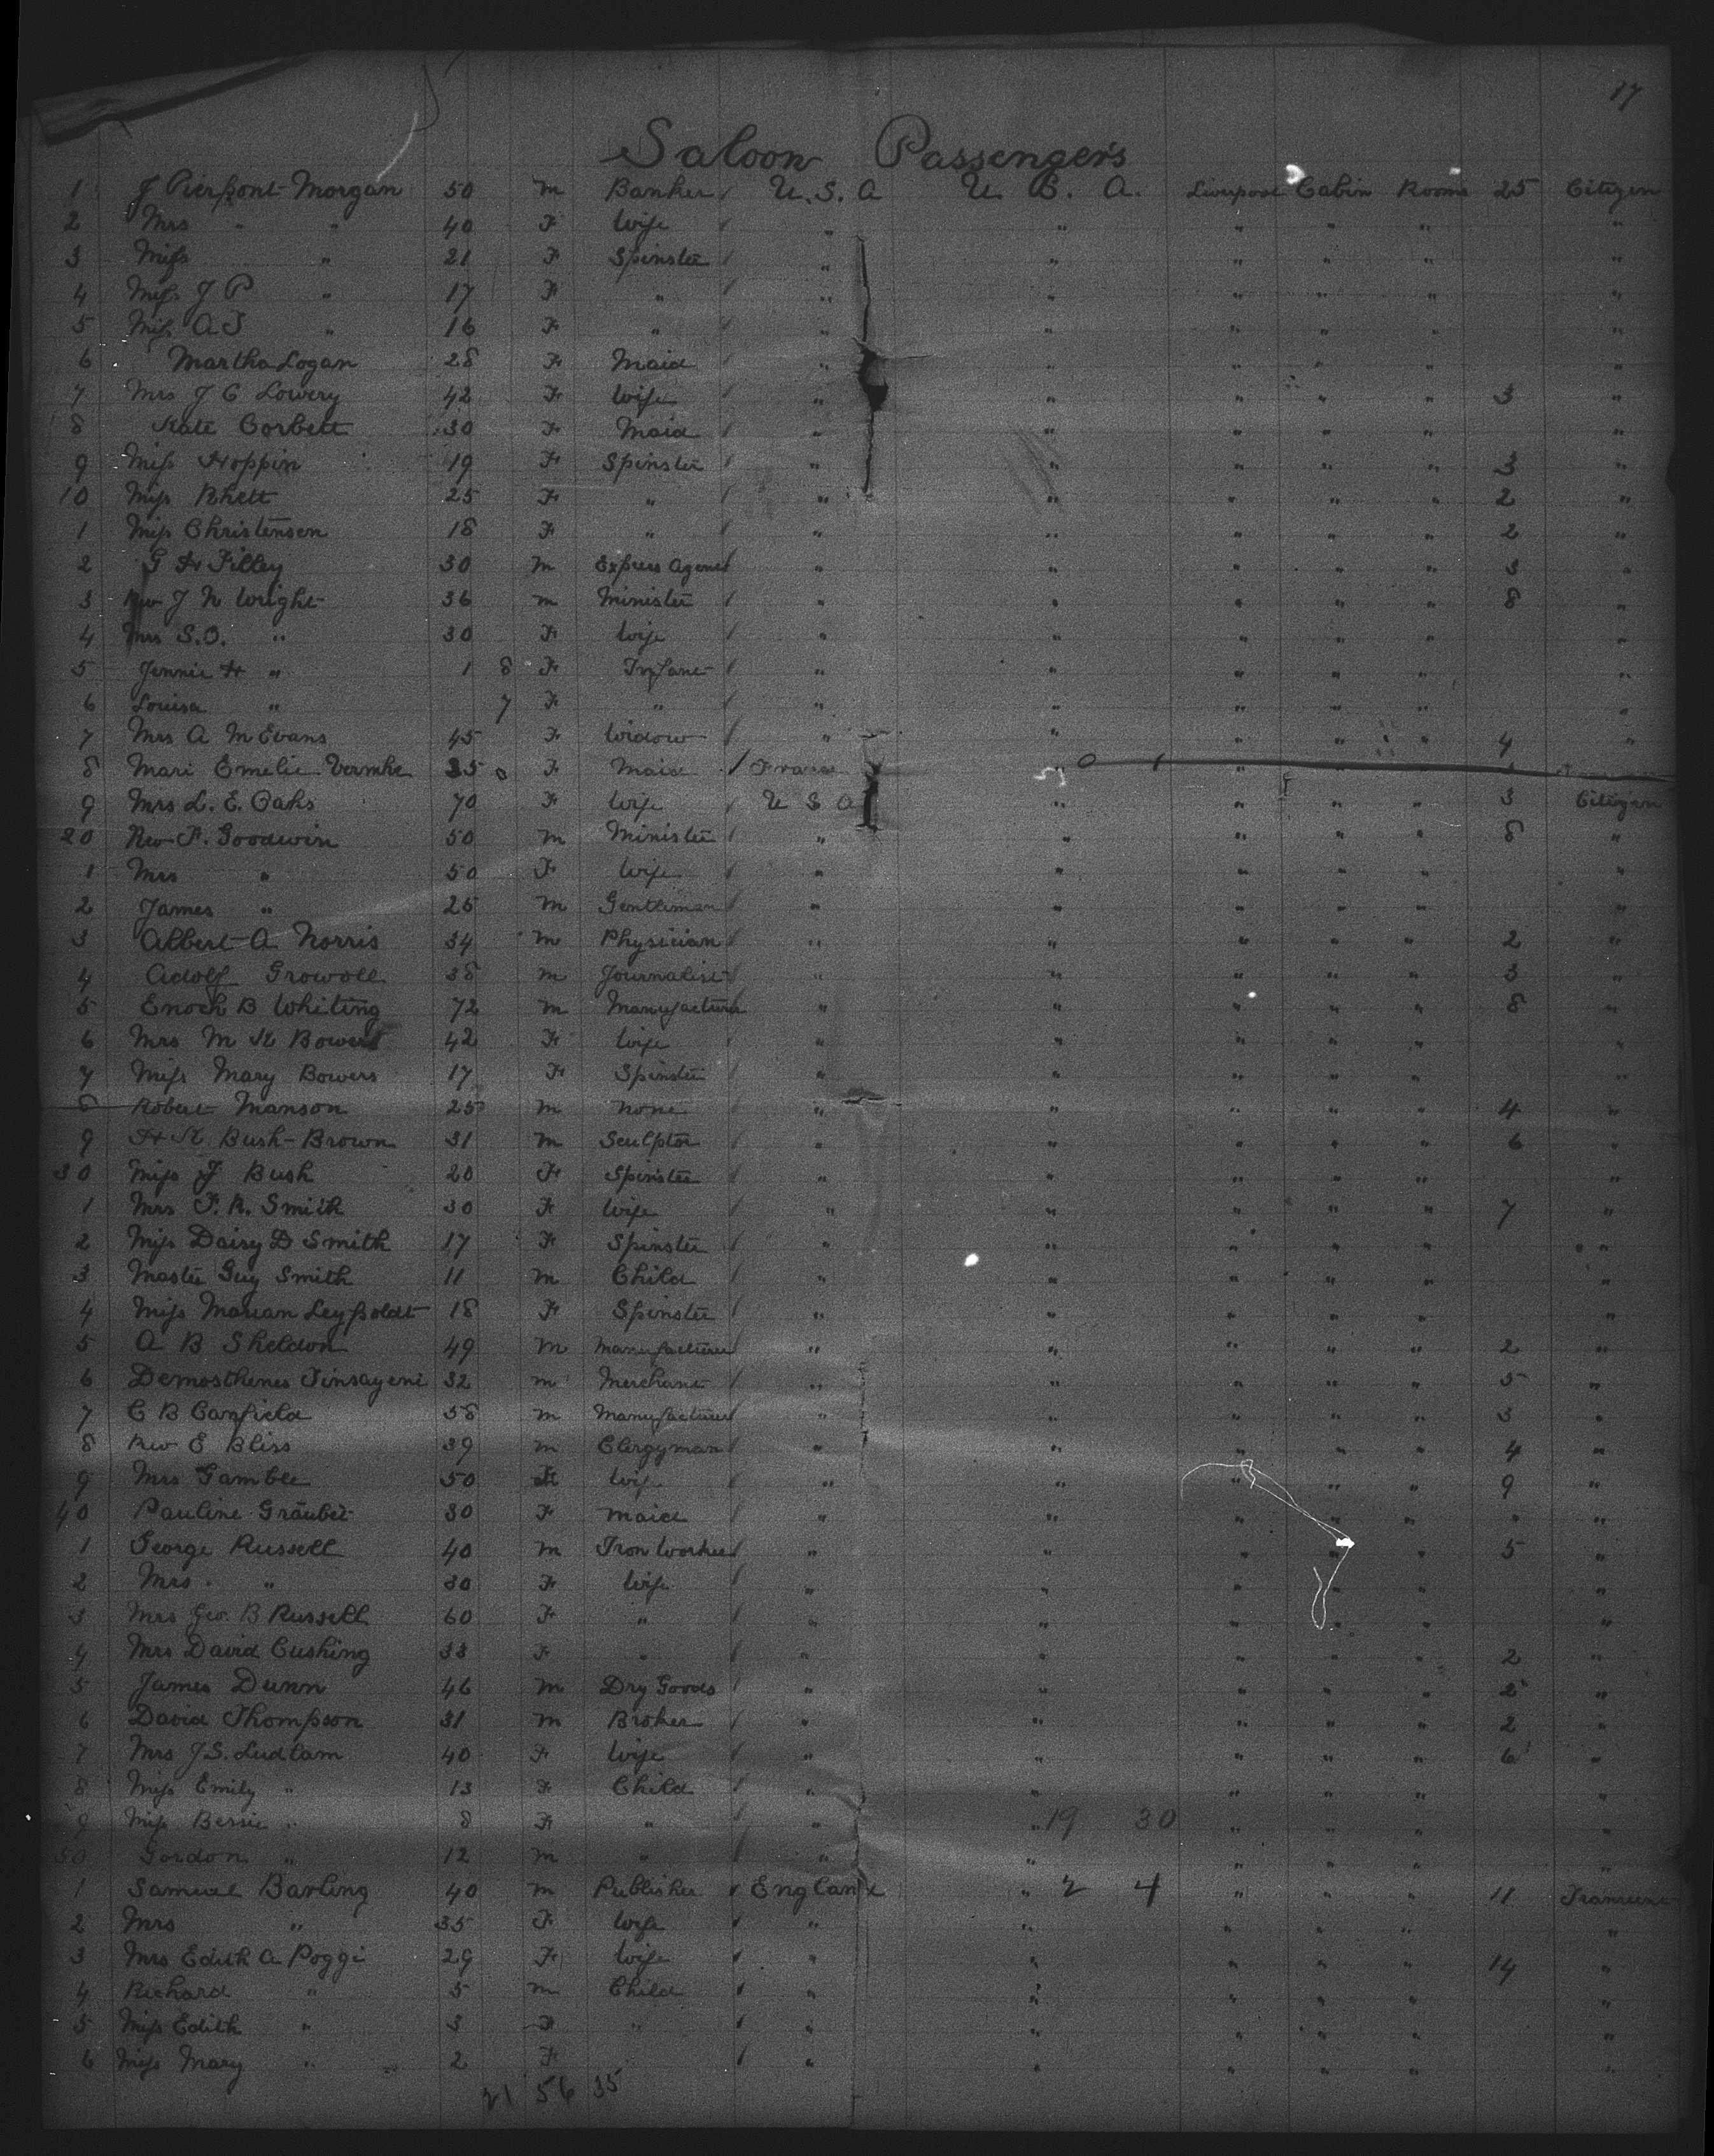 17
Saloon Passengers
1 J Pierpont Morgan 50 m Banker / U.S.A U. S. A. Liverpool Cabin Rooms 25 Citizen
2 Mrs " " 40 F Wife / " " " " " "
3 Miss " 21 F Spinster / " " " " " "
4 Miss J P " 17 F " / " " " " " "
5 Miss A T " 16 F " / " " " " " "
6 Martha Logan 28 F Maid / " " " " " "
7 Mrs J C Lowery 42 F Wife / " " " " " 3 "
8 Kate Corbett 30 F Maid / " " " " " "
9 Miss Hoppin 19 F Spinster / " " " " " 3 "
10 Miss Rhett 25 F " / " " " " " 2 "
1 Miss Christensen 18 F " / " " " " " 2 "
2 G H Filley 30 m Express Agent / " " " " " 3 "
3 Rev J N Wright 36 m Minister / " " " " " 8 "
4 Mrs S.O. " 30 F Wife / " " " " " "
5 Jennie H " 1 8 F Infant / " " " " " "
6 Louisa " 7 F " / " " " " " "
7 Mrs A M Evans 45 F Widow / " " " " " 4 "
8 Mari Emelie 35 F Maid / France " 0 1
9 Mrs L. E. Oaks 70 F Wife / U S A " " " " 3 Citizen
20 Rev F. Goodwin 50 m Minister / " " " " " 8 "
1 Mrs " 50 F Wife / " " " " " "
2 James " 25 m Gentleman / " " " " " "
3 Albert A Norris 34 m Physician / " " " " " 2 "
4 Adolf Growoll 38 m Journalist / " " " " " 3 "
5 Enoch B Whiting 72 m Manufacturer " " " " " 8 "
6 Mrs M K Bowers 42 F Wife / " " " " " "
7 Miss Mary Bowers 17 F Spinster / " " " " " "
8 Robert Manson 25 m None / " " " " " 4 "
9 H K Bush-Brown 31 m Sculptor / " " " " " 6 "
30 Miss J Bush 20 F Spinster / " " " " " "
1 Mrs F. R. Smith 30 F Wife / " " " " " 7 "
2 Miss Daisy D Smith 17 F Spinster / " " " " " "
3 Master Guy Smith 11 m Child / " " " " " "
4 Miss Marian Leypoldt 18 F Spinster / " " " " " "
5 A B Sheldon 49 m Manufacturer " " " " " 2 "
6 Demosthenes 32 m Merchant / " " " " " 5 "
7 C B Canfield 38 m Manufacturer " " " " " 3 "
8 Rev E Bliss 39 m Clergyman / " " " " " 4 "
9 Mrs Gamble 50 F Wife / " " " " " 9 "
40 Pauline Gräuber 30 F Maid / " " " " " " "
1 George Russell 40 m Iron Worker / " " " " " 5 "
2 Mrs " 30 F Wife / " " " " " "
3 Mrs Geo. B Russell 60 F " / " " " " " "
4 Mrs David Cushing 33 F " / " " " " " 2 "
5 James Dunn 46 m Dry Goods / " " " " " 2 "
6 David Thompson 31 m Broker / " " " " " 2 "
7 Mrs J.S. Ludlam 40 F Wife / " " " " " 6 "
8 Miss Emily " 13 F Child / " " " " " "
9 Miss Bessie " 8 F " / " " 19 30 " " " "
50 Gordon " 12 m " / " " " " " "
1 Samuel Barling 40 m Publisher / England " 2 4 " " " 11
2 Mrs " 35 F Wife / " " " " " "
3 Mrs Edith A Poggi 29 F Wife / " " " " " 14 "
4 Richard " 5 m Child / " " " " " "
5 Miss Edith " 3 F " / " " " " " "
6 Miss Mary " 2 F / " " " " " "
21 56 35